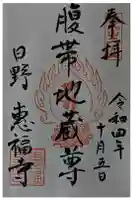 奉拝
令和四年
十月五日
腹帯地蔵尊
日野 惠福寺